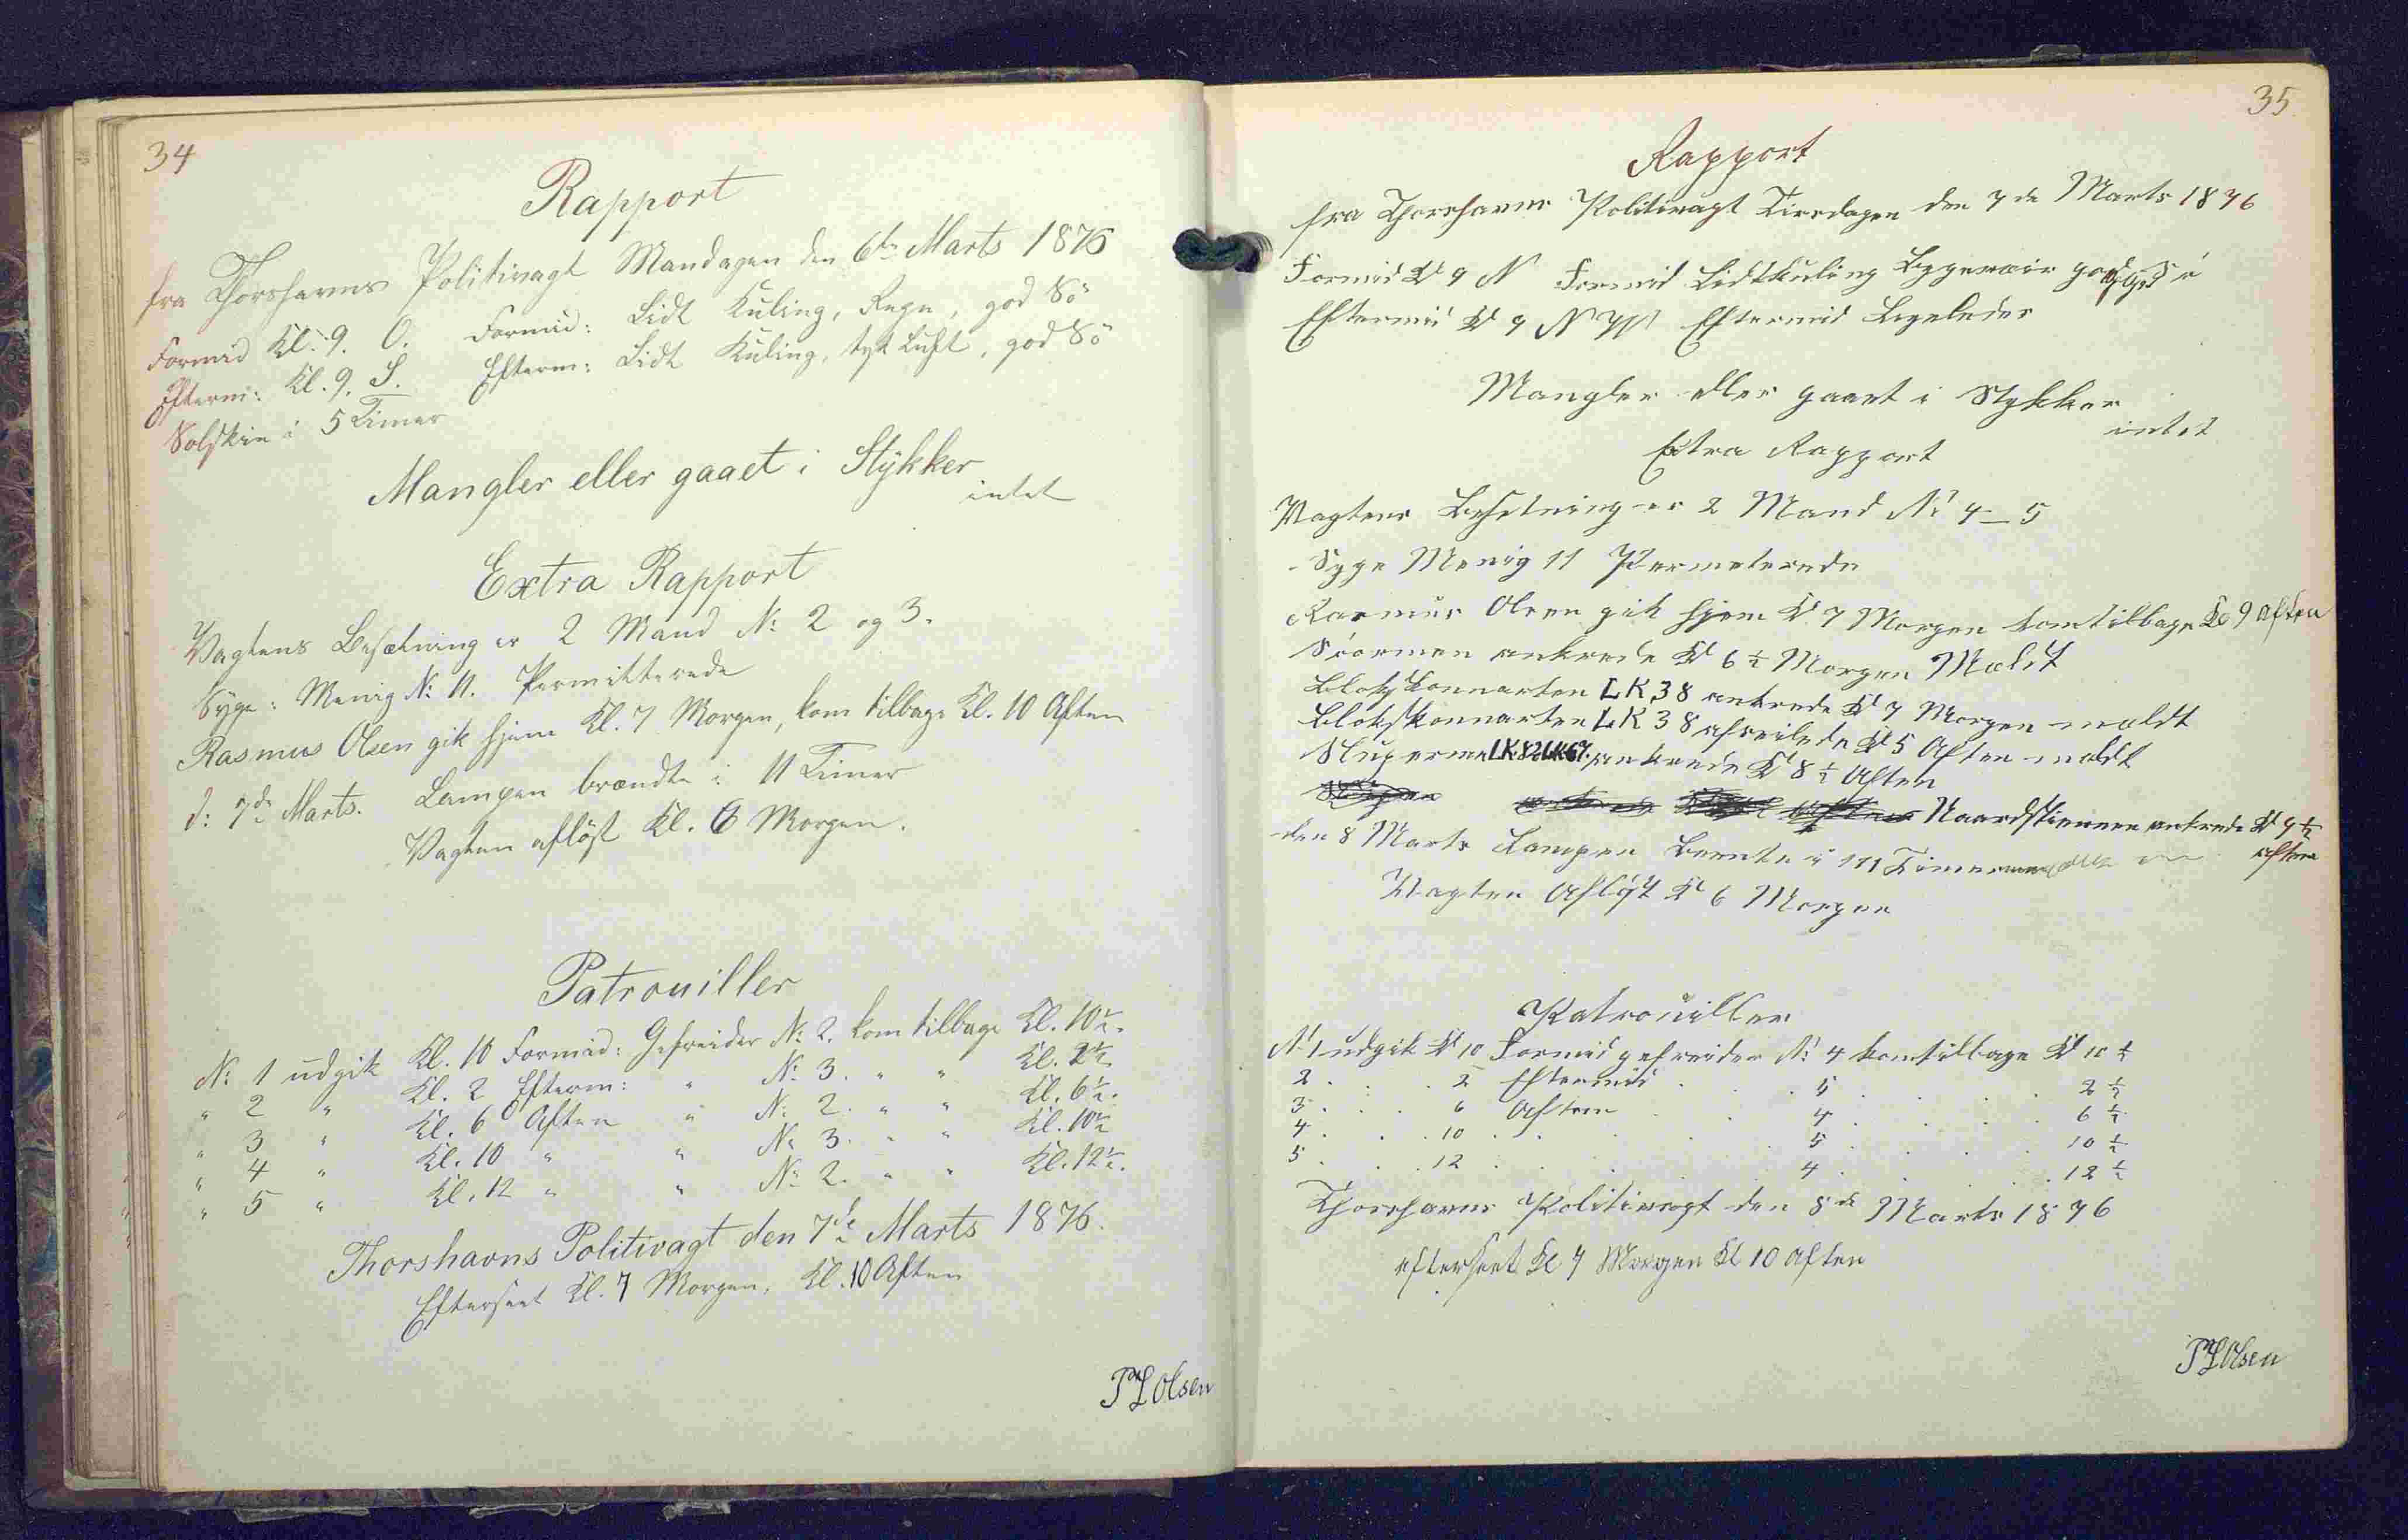 34
Rapport
fra Thorshavns Politivagt Mandagen den 6te Marts 1876
Formid Kl. 9. O. Formid: Lidt Kuling, Regn, god Sö
Efterm: Kl. 9. S. Efterm: Lidt Kuling, tyk Luft, god Sö
Solskin i 5 Timer
Mangler eller gaaet i Stykker
intet
Extra Rapport
Vagtens Besætning er 2 Mand No 2 og 3.
Syge: Menig No 11. Permitterede
Rasmus Olsen gik hjem Kl. 7 Morgen, kom tilbage Kl. 10 Aften
d: 7de Marts. Lampen brændte i 11 Timer
Vagten aflöst Kl. 6 Morgen.
Patrouiller
No 1 udgik Kl. 10 Formid: Gefreider No 2. kom tilbage Kl. 10½.
" 2 " Kl. 2 Efterm: " No 3. " " Kl. 2½.
" 3 " Kl. 6 Aften " No 2. " " Kl. 6½.
" 4 " Kl. 10 " " No 3. " " Kl. 10½
" 5 " Kl. 12 " " No 2. " " Kl. 12½.
Thorshavns Politivagt den 7de Marts 1876.
Efterseet Kl. 7 Morgen, Kl. 10 Aften
Olsen
35
Rapport
fra Thorshavns Politivagt Tirsdagen den 7de Marts 1876
Formid Kl 9 N Formid Lidt Kuling
Eftermid Kl 9 N Eftermid Ligeledes
Mangler eller gaaet i Stykker
intet
Extra Rapport
Vagtens Besetning er 2 Mand No 4 – 5
Syge Menig 11 Permeterede
Rasmus Olsen gik hjem Kl 7 Morgen kom tilbage Kl 9 Aften
ankrede Kl 6½ Morgen Mældt
LK 38 ankrede Kl 7 Morgen mældt
LK 38 afseilede Kl 5 Aften mældt
LK 82 LK 67 ankrede Kl 8½ Aften
ankrede Kl 9½
Aften
den 8 Marts Lampen Brente i 11 Timer
Vagten Aflöst Kl 6 Morgen
Patrouiller
No 1 udgik Kl 10 Formid gefreider No 4 kom tilbage Kl 10½
2 . . . 2 Eftermid . . 5 . . . 2½
3 . . . 6 Aften . . 4 . . . 6½
4 . . . 10 . . . 5 . . . 10½
5 . . . 12 . . . 4 . . . 12½
Thorshavns Politivagt den 8de Marts 1876
efterseet Kl 7 Morgen Kl 10 Aften
Olsen